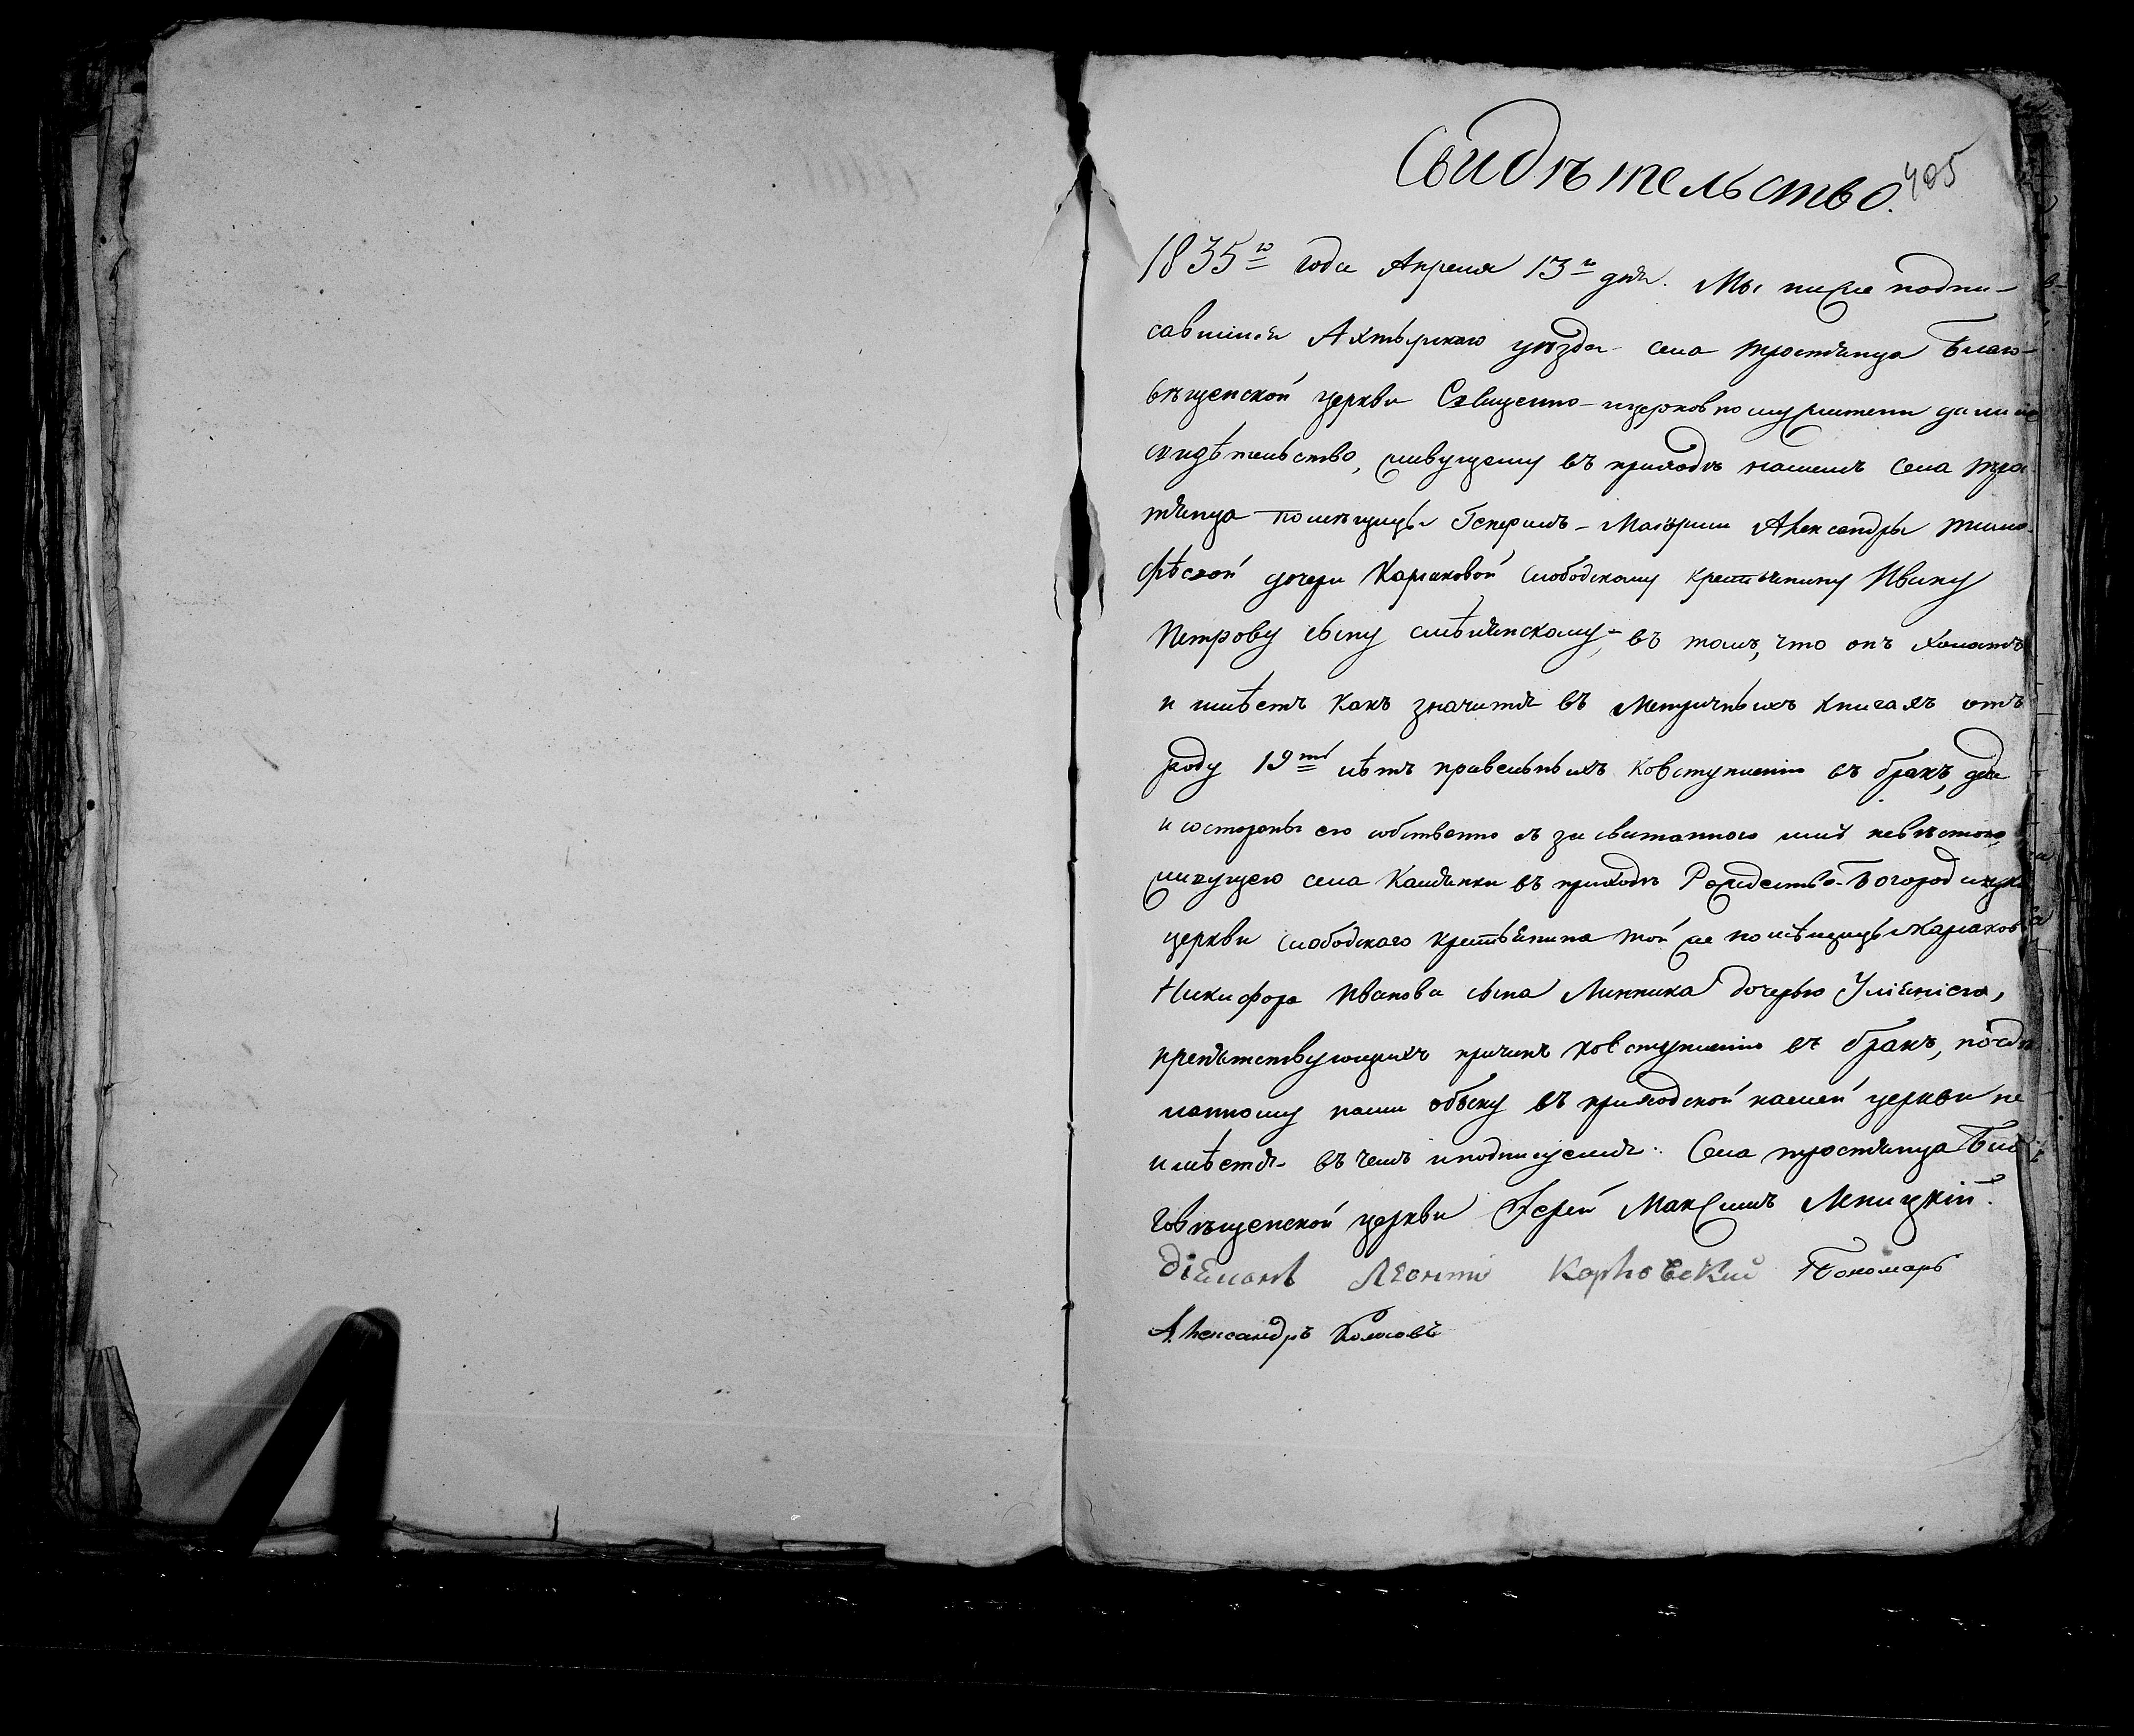 Свидѣтельство.
405
1835го года Апреля 13го дня. Мы ниже подпи-
савшіися Ахтырскаго уѣзда села Тростянца Благо-
вѣщенской церкви Священно-ицерковнослужители дали сіе
свидѣтельство, живущему въ приходѣ нашемъ села Трос
тянца помѣщицы Генералъ-Маіорши Александры Тимо-
фѣевой дочери Карсаковой слободскому крестьянину Ивану
Петрову сыну въ томъ, что онъ холостъ
и имѣетъ какъ значится въ Метричныхъ книгахъ отъ
роду 19ть лѣтъ ковступленію въ бракъ, да
и состороны его собственно съ засватанною имъ невѣстою,
живущею села въ приходѣ Рождество-Богородичной
церкви слободскаго крестьянина той же помѣщицы Карсаковой
Никифора Иванова сына Линника дочерью Уліяніею,
препятствующихъ причинъ ковступленію въ бракъ, по
нами обыску въ приходской нашей церкви не
имѣется въ чемъ иподписуемся: Села Тростянца Бла
говѣщенской церкви Іерей Максимъ
Діяконъ Леонтій Карповскій Пономарь
Александръ